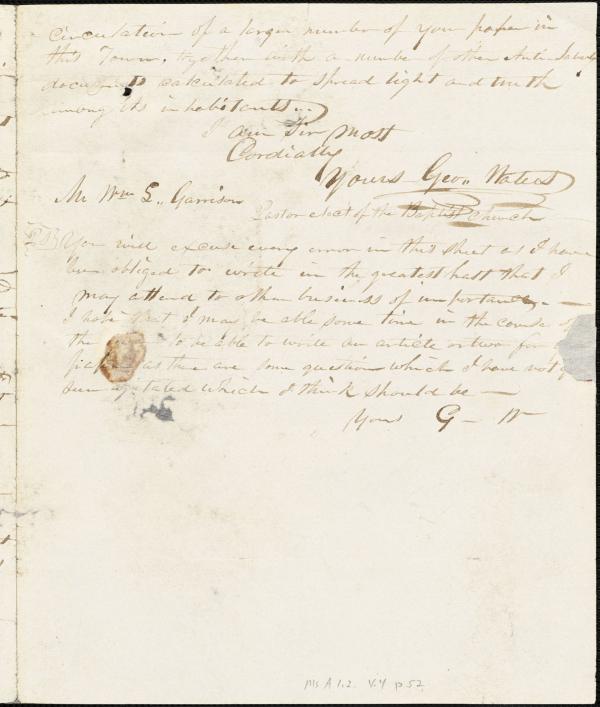 circulation of a larger number of your paper in
this Town, together with a number of other Anti Slavery
documents calculated to spread light and truth
among its inhabitants...
I am Sir most
Cordially
Yours Geo. Waters
Mr Wm L. Garrison
Pastor elect of the Baptist Church
PS) You will excuse every error in this sheet as I have
been obliged to write in the greatest hast that I
may attend to other business of importance —
I hope that I may be able some time in the course of
the to be able to write an article or two for
as there are some question which I have not
seen agitated which I think should be —
Yours G — W
Ms A 1.2 V.4 p 52